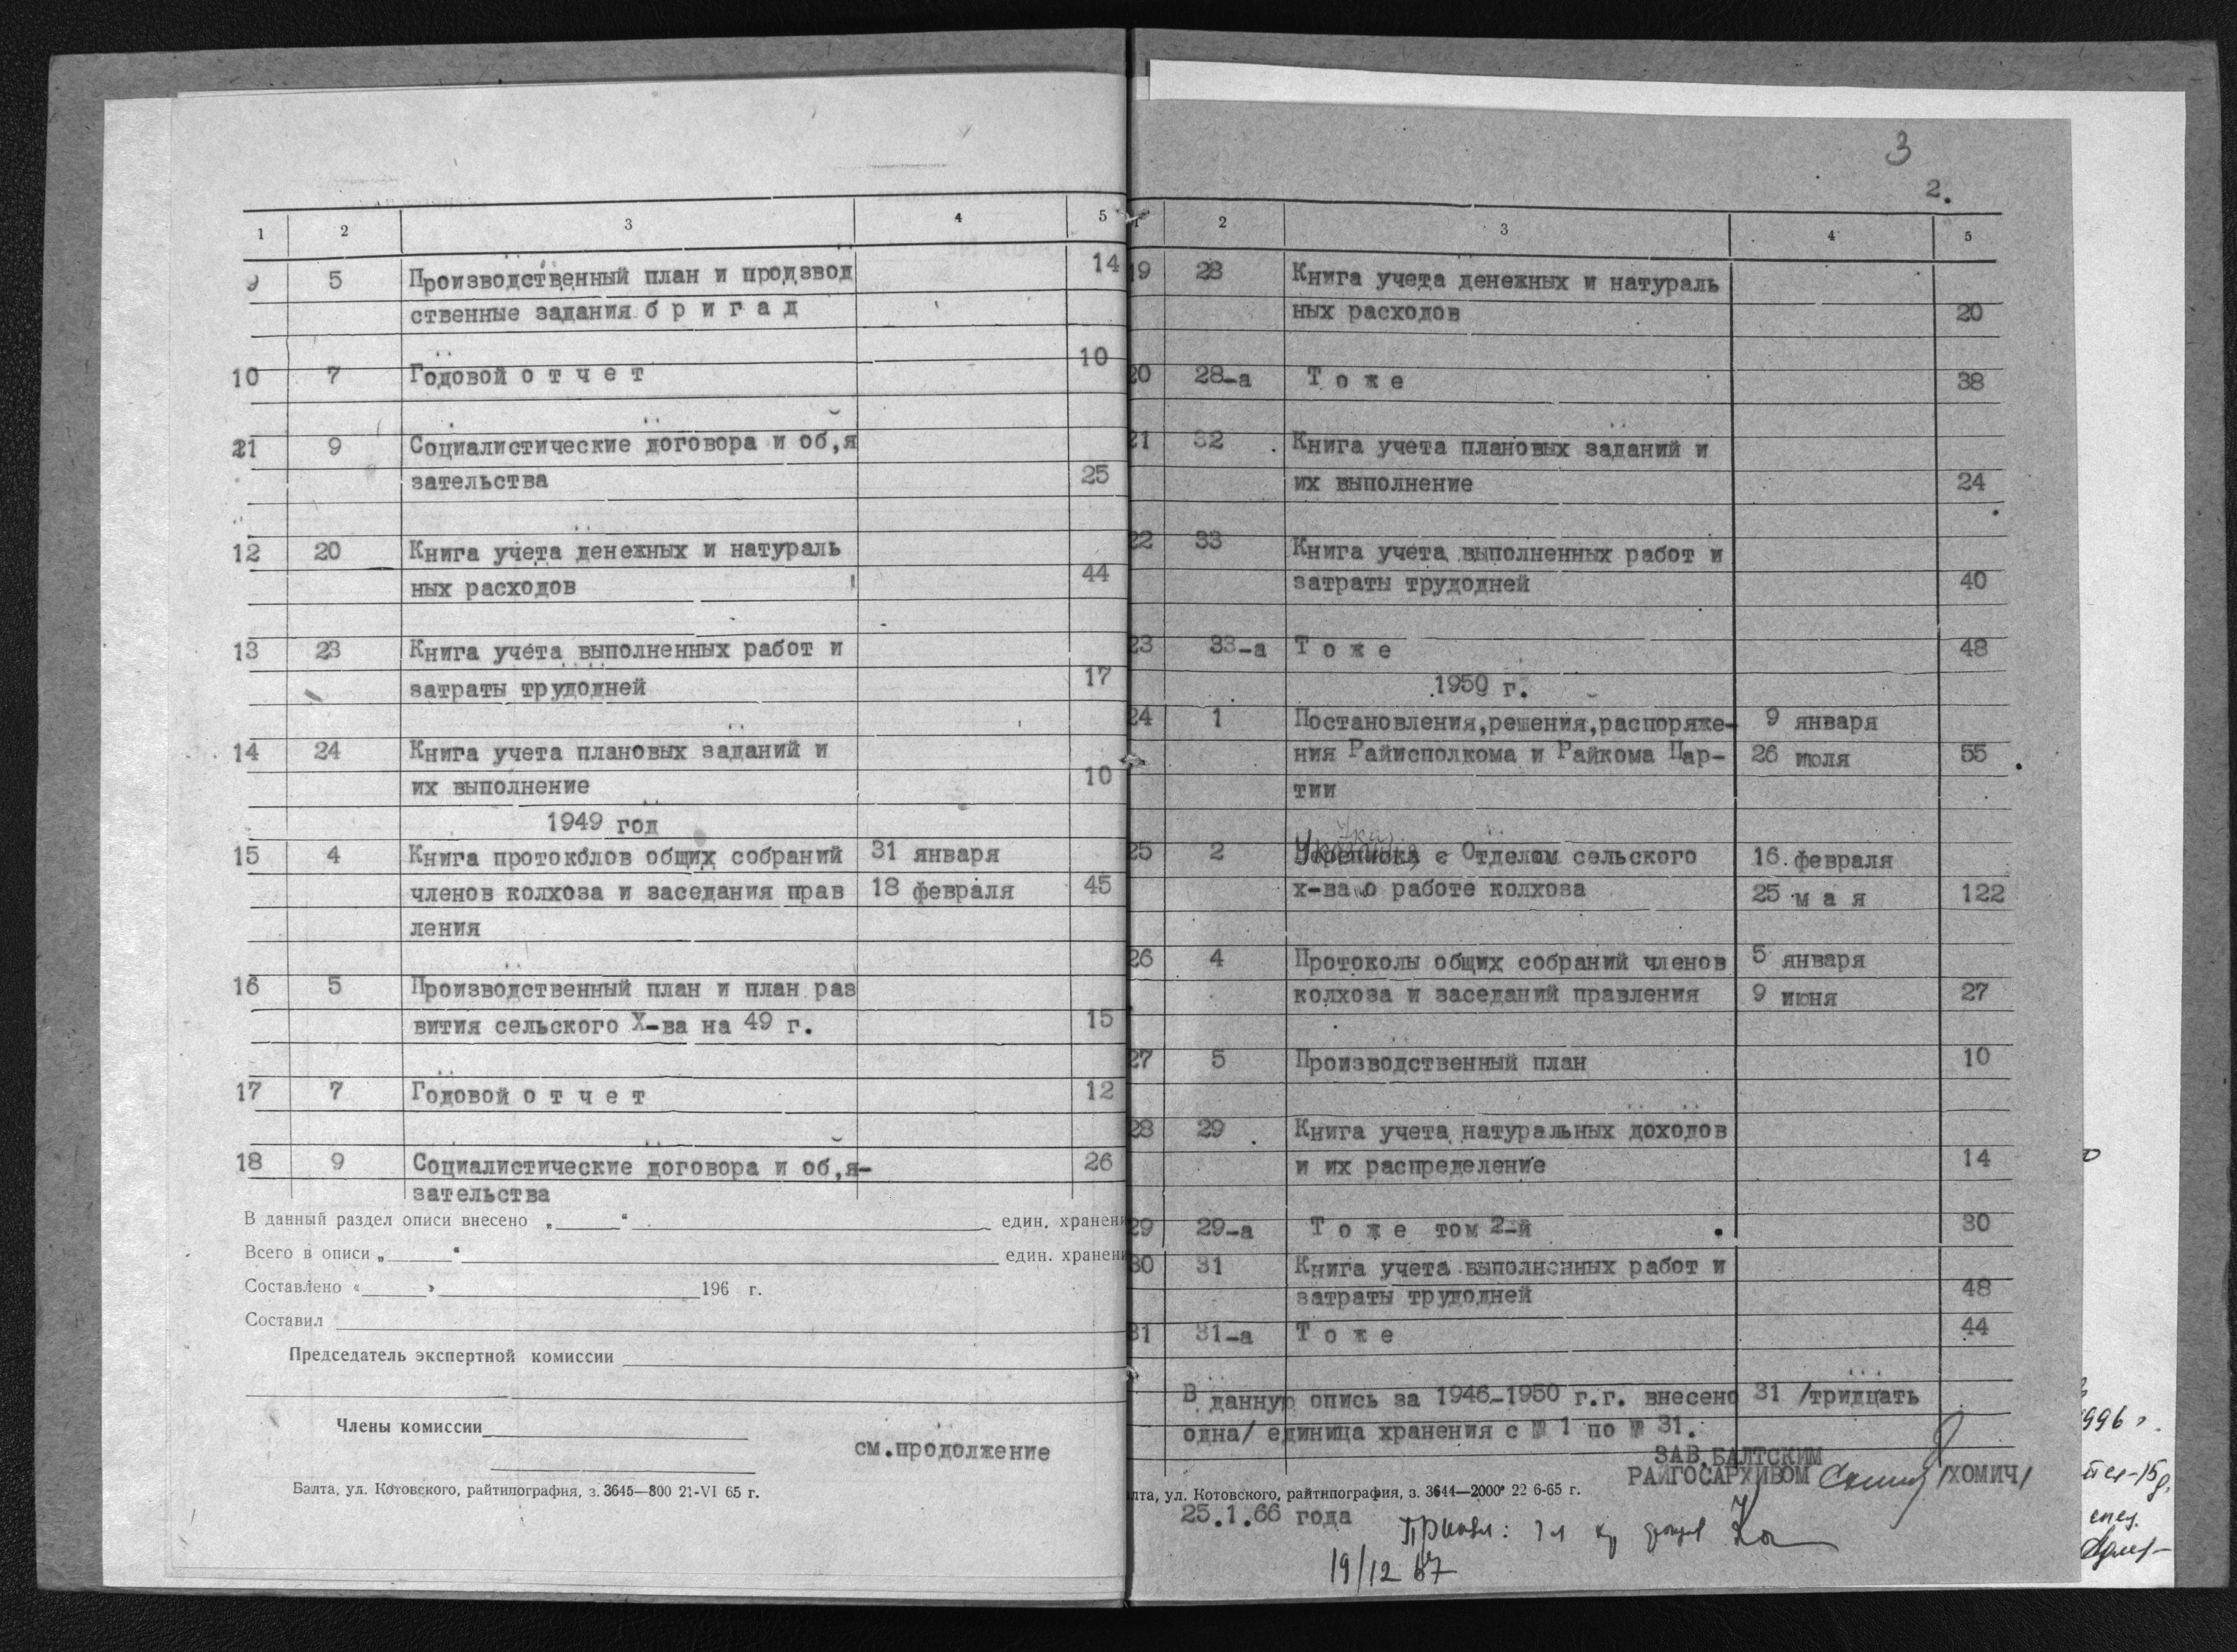 1 2 3 4 5
9 5 Производственный план и производ 14
ственные задания б р и г а д
10 7 Годовой о т ч е т 10
21 9 Социалистические договора и об,я
зательства 25
12 20 Книга учета денежных и натураль
ных расходов 44
13 23 Книга учета выполненных работ и
затраты трудодней 17
14 24 Книга учета плановых заданий и
их выполнение 10
1949 год
15 4 Книга протоколов общих собраний 31 января
членов колхоза и заседания прав 18 февраля 45
ления
16 5 Производственный план и план раз
вития сельского Х-ва на 49 г. 15
17 7 Годовой о т ч е т 12
18 9 Социалистические договора и об,я- 26
зательства
В данный раздел описи внесено „ “ един. хранени
Всего в описи „ “ един. хранени
Составлено « » 196 г.
Составил
Председатель экспертной комиссии
Члены комиссии
см.продолжение
Балта, ул. Котовского, райтипография, з. 3645—800 21-VI 65 г.
3
2.
1 2 3 4 5
19 28 Книга учета денежных и натураль
ных расходов 20
20 28-а Т о ж е 38
21 32 Книга учета плановых заданий и
их выполнение 24
22 33 Книга учета выполненных работ и
затраты трудодней 40
23 33-а Т о ж е 48
1950 г.
24 1 Постановления,решения,распоряже- 9 января
ния Райисполкома и Райкома Пар- 26 июля 55
тии
25 2 с Отделом сельского 16 февраля
х-ва о работе колхоза 25 м а я 122
26 4 Протоколы общих собраний членов 5 января
колхоза и заседаний правления 9 июня 27
27 5 Производственный план 10
28 29 Книга учета натуральных доходов
и их распределение 14
29 29-а Т о ж е том 2-й 30
30 31 Книга учета выполненных работ и
затраты трудодней 48
31 31-а Т о ж е 44
В данную опись за 1946-1950 г.г. внесено 31 /тридцать
одна/ единица хранения с № 1 по № 31.
ЗАВ.БАЛТСКИМ
РАЙГОСАРХИВОМ /ХОМИЧ/
лта, ул. Котовского, райтипография, з. 3644—2000 22 6-65 г.
25.1.66 года
19/12 67
996 г.